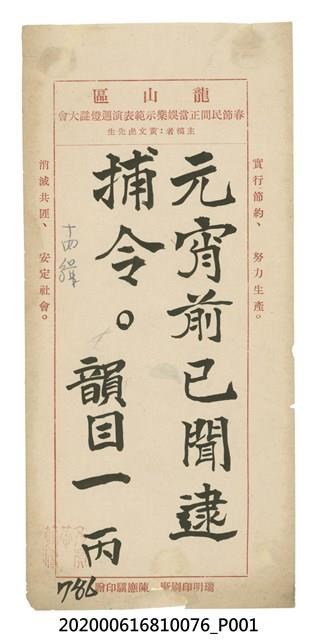 龍山區
春節民間正當娛樂示範表演迴燈謎大會
主稿者：黃文虎先生
實行節約、努力生產。
元宵前已聞逮
捕令。韻目一
丙
十四鎋
消滅共匪、安定社會。
786
瓏明印刷廠 陳應麟印贈
202000616810076_P001